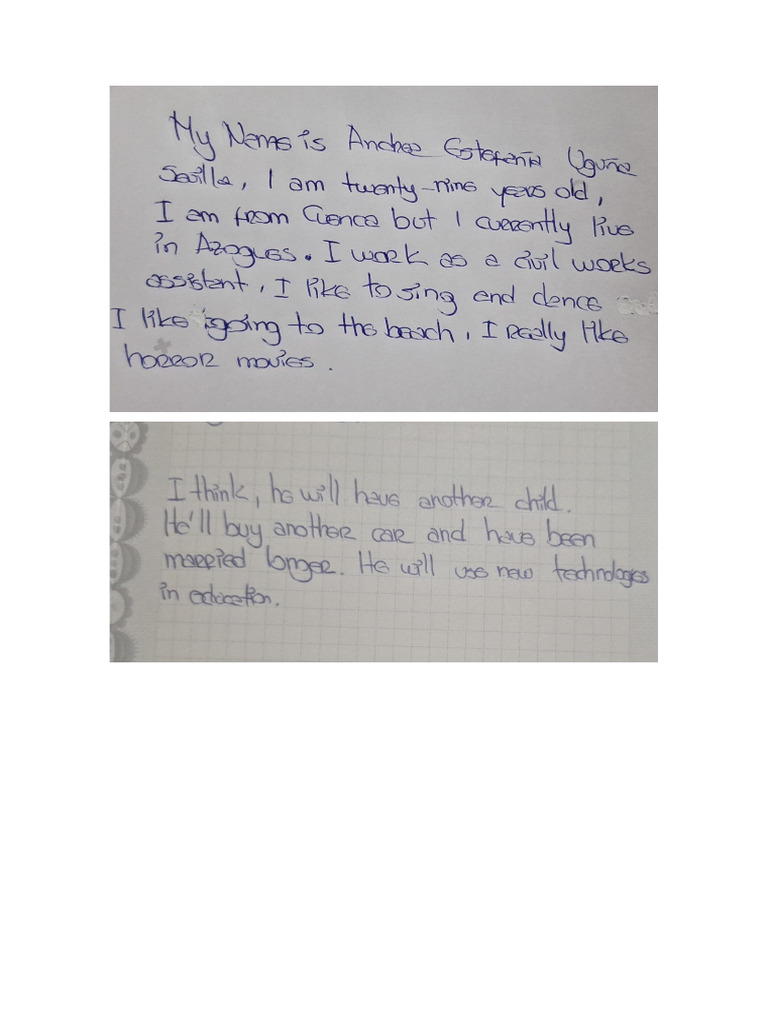 My Name is Andrea Estefania Uguña
Sevilla, I am twenty-nine years old,
I am from Cuenca but I currently live
in Azogues. I work as a civil works
assistent, I like to sing and dance
I like going to the beach, I really like
horror movies.
I think, he will have another child.
He'll buy another car and have been
married longer. He will use new technologies
in education.